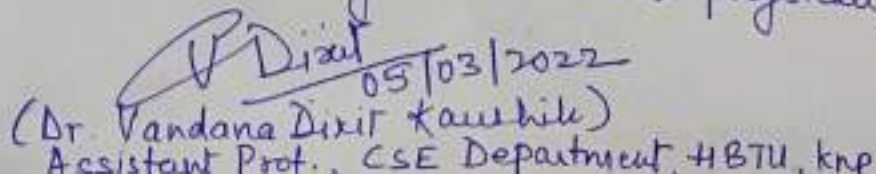 V Dixit
05/03/2022
(Dr. Vandana Dixit Kaushik)
Assistant Prof., CSE Department, HBTU, knp